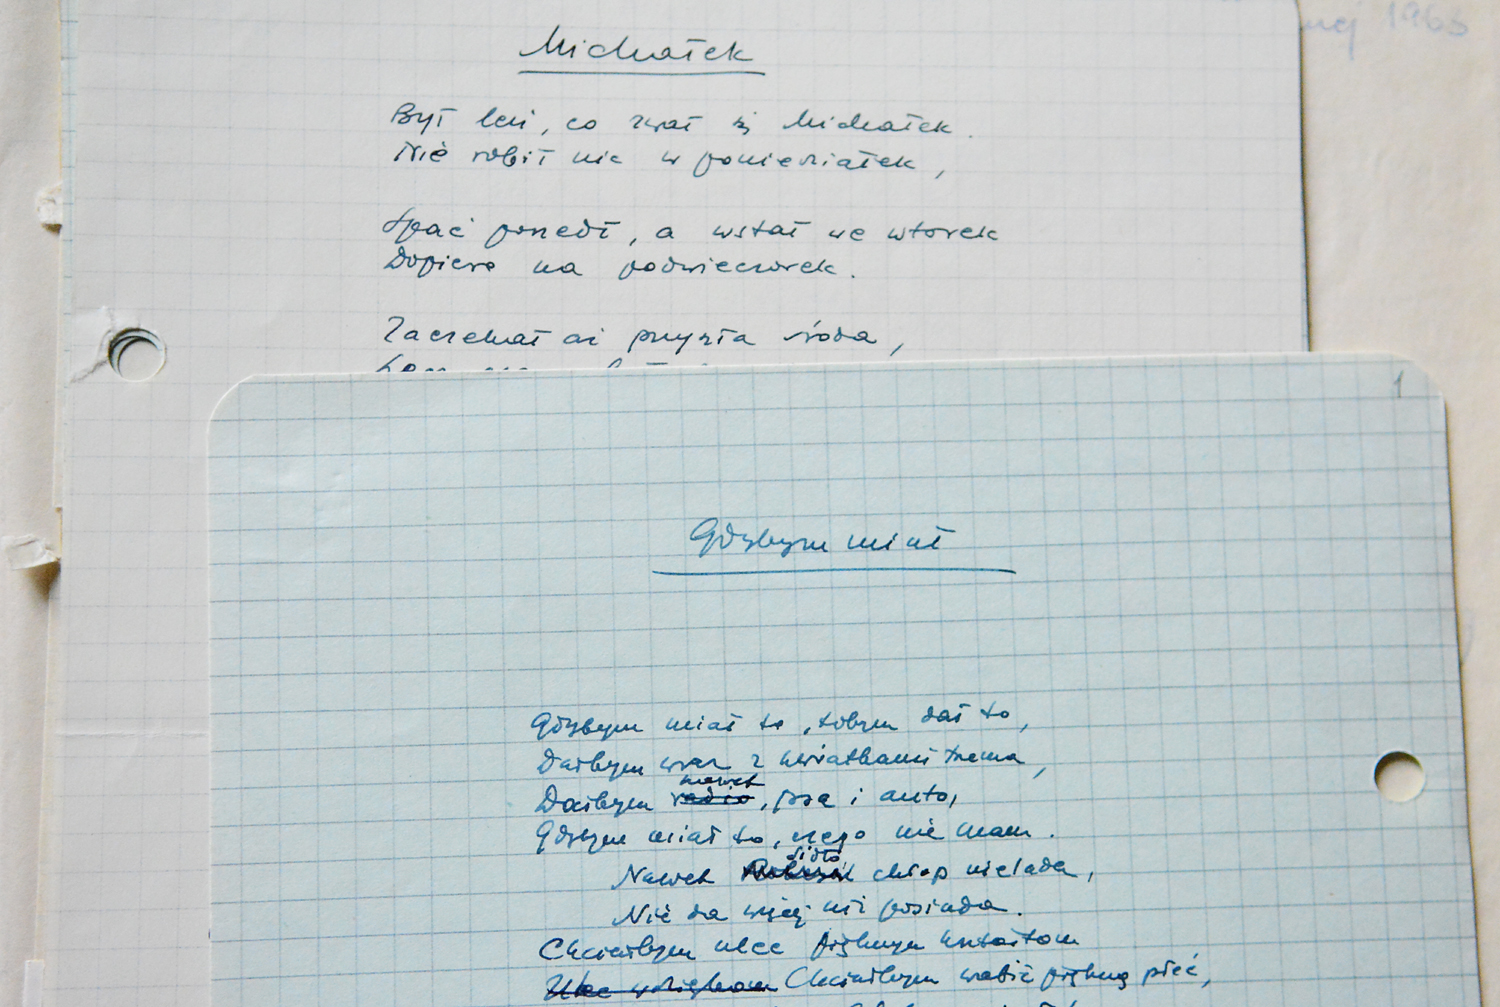 maj 1963
Michałek
Był leń, co zwał się Michałek.
Nie robił nic w poniedziałek,
Spać poszedł, a wstał we wtorek
Dopiero na podwieczorek.
Zaczekał aż przyszła środa,
1
Gdybym miał
Gdybym miał to, tobym dał to,
Dałbym wraz z kwiatkami trzema,
nawet
Dałbym radio, psa i auto,
Gdybym miał to, czego nie mam.
Nawet chłop nielada,
Nie da więcej niż posiada.
Chciałbym ulec pięknym kształtom
Ulec wdziękom Chciałbym wabić piękną płeć,